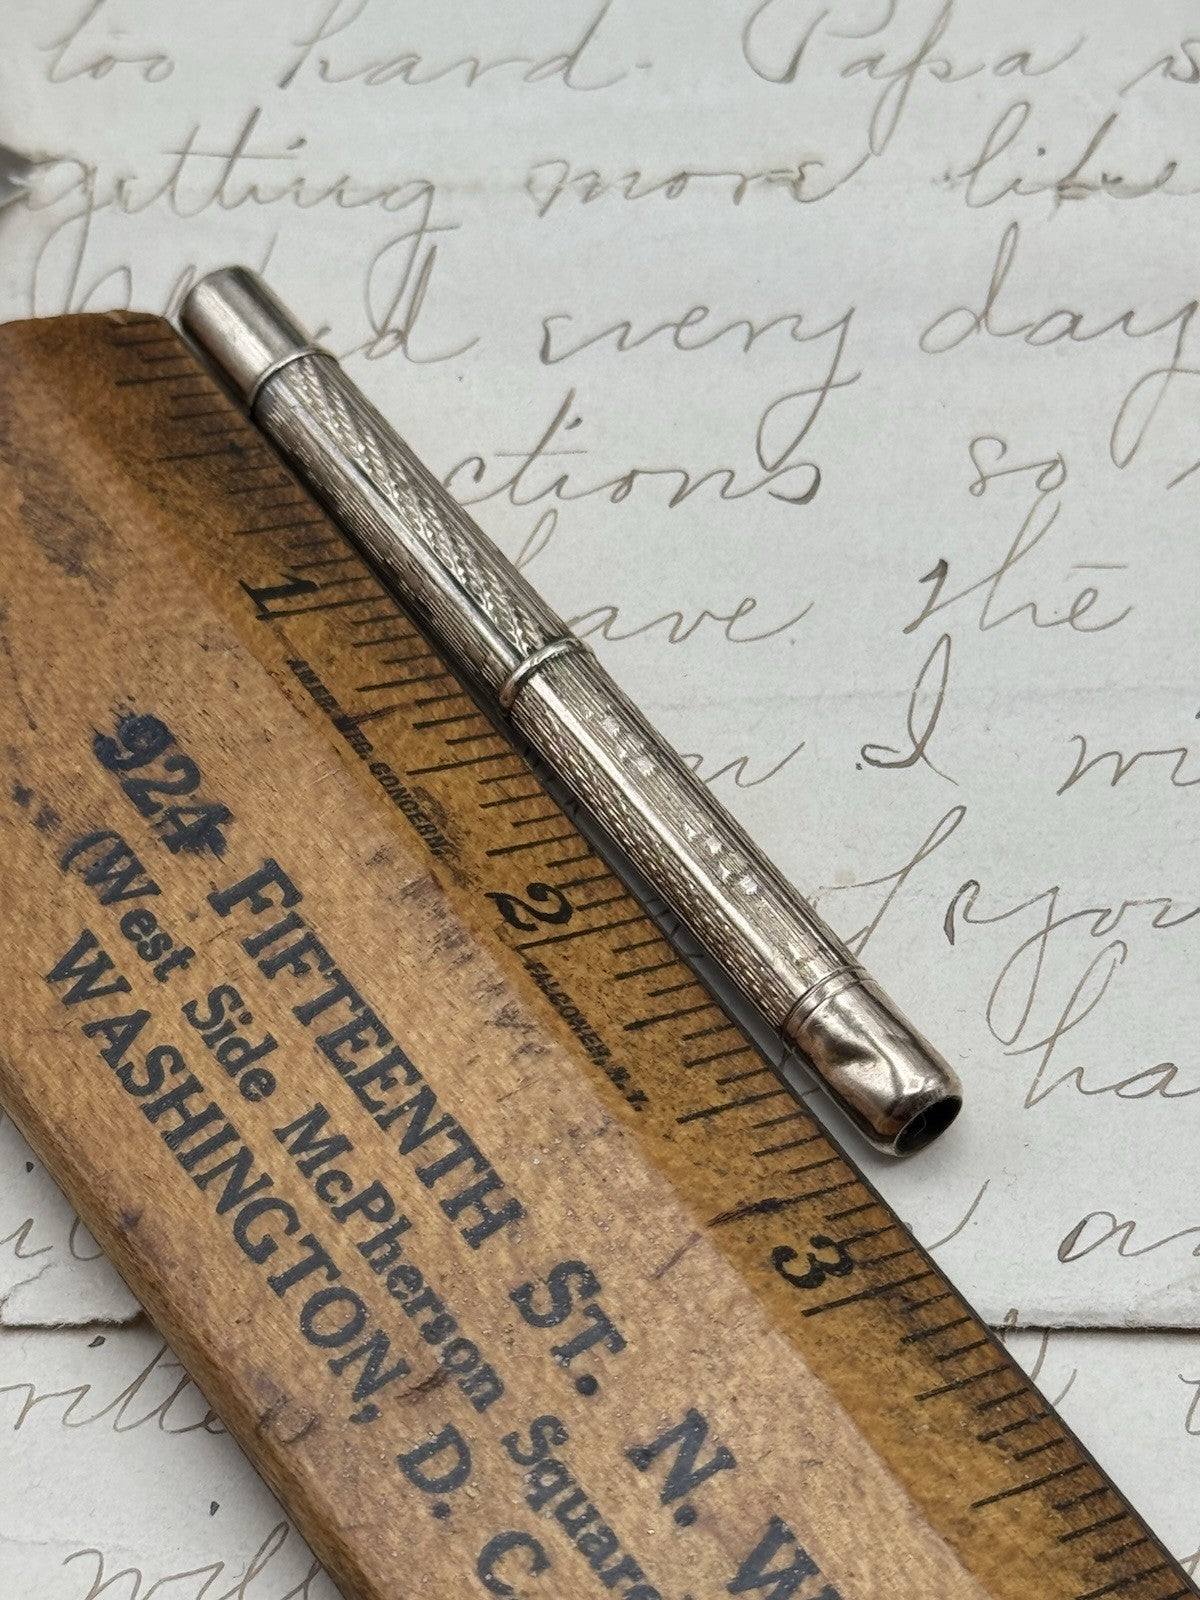 too hard. Papa s
getting more like
every day
ctions so
have the
I wi
you
ha
1
AMER. MFG. CONCERN,
2
FALCONER, N.Y.
3
924 FIFTEENTH ST. N. W
(West Side McPherson Square
WASHINGTON, D. C
will